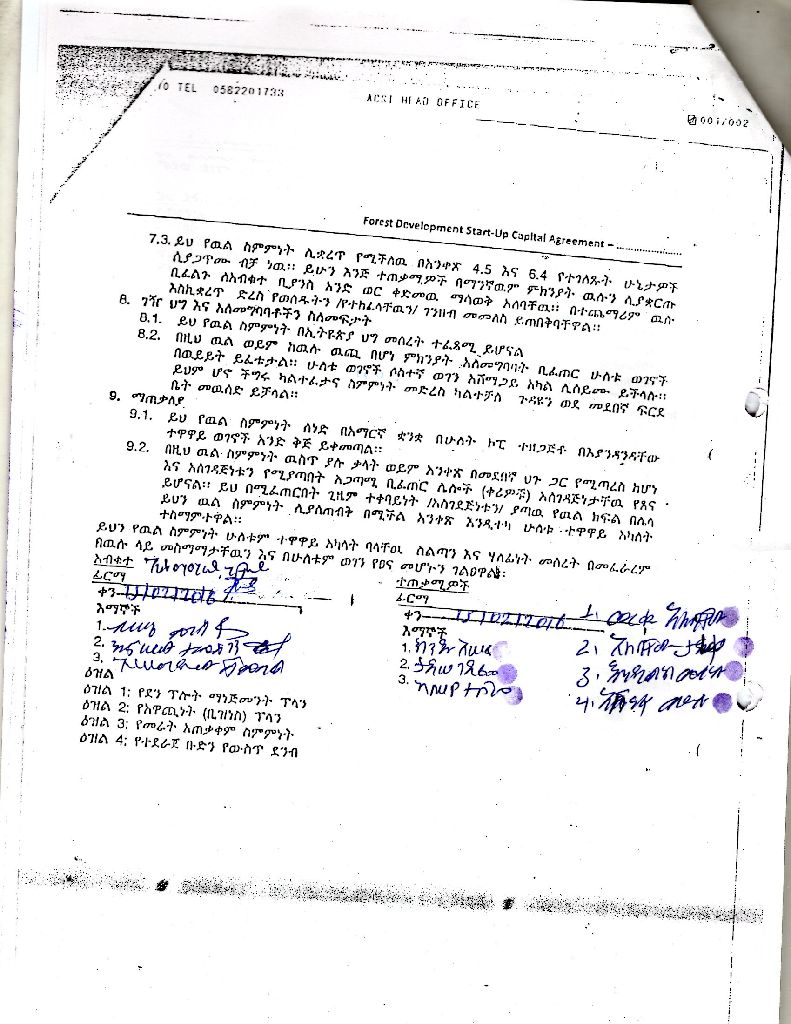 TEL 0582201733
ACSI HEAD OFFICE
001/002
Forest Development Start-Up Capital Agreement – .....................
7.3. ይህ የዉል ስምምነት ሊቋረጥ የሚችለዉ በአንቀጽ 4.5 እና 6.4 የተገለጹት ሁኔታዎች
ሲያጋጥሙ ብቻ ነዉ። ይሁን እንጅ ተጠቃሚዎች በማንኛዉም ምክንያት ዉሉን ሊያቋርጡ
ቢፈልጉ ለአብቁተ ቢያንስ አንድ ወር ቀድመዉ ማሳወቅ አለባቸዉ። በተጨማሪም ዉሉ
እስኪቋረጥ ድረስ የወሰዱትን /የተከፈላቸዉን/ ገንዘብ መመለስ ይጠበቅባቸዋል።
8. ገዥ ህግ እና አለመግባባቶችን ስለመፍታት
8.1. ይህ የዉል ስምምነት በኢትዮጵያ ህግ መሰረት ተፈጻሚ ይሆናል
8.2. በዚህ ዉል ወይም ከዉሉ ዉጪ በሆነ ምክንያት አለመግባባት ቢፈጠር ሁለቱ ወገኖች
በዉይይት ይፈቱታል። ሁለቱ ወገኖች ሶስተኛ ወገን አሸማጋይ አካል ሊሰይሙ ይችላሉ።
ይህም ሆኖ ችግሩ ካልተፈታና ስምምነት መድረስ ካልተቻለ ጉዳዩን ወደ መደበኛ ፍርድ
ቤት መዉሰድ ይቻላል።
9. ማጠቃለያ
9.1. ይህ የዉል ስምምነት ሰነድ በአማርኛ ቋንቋ በሁለት ኮፒ ተዘጋጅቶ በእያንዳንዳቸው
ተዋዋይ ወገኖች እንድ ቅጅ ይቀመጣል።
9.2. በዚህ ዉል ስምምነት ዉስጥ ያሉ ቃላት ወይም አንቀጽ በመደበኛ ህጉ ጋር የሚጣረስ ከሆነ
እና አስገዳጅነቱን የሚያጣበት አጋጣሚ ቢፈጠር ሌሎች (ቀሪዎቹ) አስገዳጅነታቸዉ የጸና
ይሆናል። ይህ በሚፈጠርበት ጊዜም ተቀባይነት /አስገደጅነቱን/ ያጣዉ የዉል ክፍል በሌላ
ይህን ዉል ስምምነት ሊያስጠብቅ በሚችል አንቀጽ እንዲተካ ሁለቱ ተዋዋይ አካለት
ተስማምተዋል።
ይህን የዉል ስምምነት ሁለቱም ተዋዋይ አካላት ባላቸዉ ስልጣን እና ሃላፊነት መሰረት በመፈራረም
በዉሉ ላይ መስማማታቸዉን እና በሁለቱም ወገን የፀና መሆኑን ገልፀዋል፡
አብቁተ
ተጠቃሚዎች
ፊርማ
ፊርማ
ቀን 15/02/2016
ቀን 15/02/2016
እማኞች
እማኞች
1.
2.
3.
1.
2.
3.
1.
2.
3.
4.
ዕዝል
ዕዝል 1: የደን ፕሎት ማነጅመንት ፕላን
ዕዝል 2: የአዋጪነት (ቢዝነስ) ፕላን
ዕዝል 3: የመሬት አጠቃቀም ስምምነት
ዕዝል 4: የተደራጀ ቡድን የውስጥ ደንብ